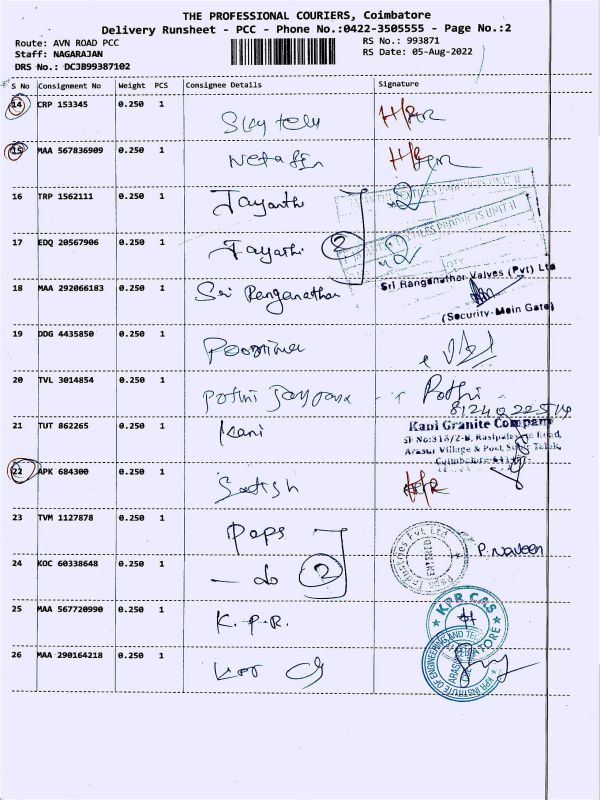 THE PROFESSIONAL COURIERS, Coimbatore
Delivery Runsheet - PCC - Phone No.:0422-3505555 - Page No.:2
Route: AVN ROAD PCC
RS No.: 993871
Staff: NAGARAJAN
RS Date: 05-Aug-2022
DRS No.: DCJB99387102
S No Consignment No Weight PCS Consignee Details Signature
14 CRP 153345 0.250 1
15 MAA 567836909 0.250 1
16 TRP 1562111 0.250 1 Jayanthi
17 EDQ 20567906 0.250 1 Jayathi 2
TEXTILES PRODUCTS UNIT II
18 MAA 292066183 0.250 1 Sri Ranganathar
Sri Ranganathar Valves (Pvt) Ltd
(Security-Main Gate)
19 DDG 4435850 0.250 1 Poornima
20 TVL 3014854 0.250 1 Pothi Pothi
21 TUT 862265 0.250 1 Kani
Kani Granite Company
SF No:318/2-B, Road,
Arasur Village & Post, Taluk,
Coimbatore
22 APK 684300 0.250 1 Satish
23 TVM 1127878 0.250 1 Paps P. Naveen
24 KOC 60338648 0.250 1 - do 2
25 MAA 567720990 0.250 1 K.P.R.
KPR CAS
26 MAA 290164218 0.250 1 KPR
KPR INSTITUTE OF ENGINEERING AND